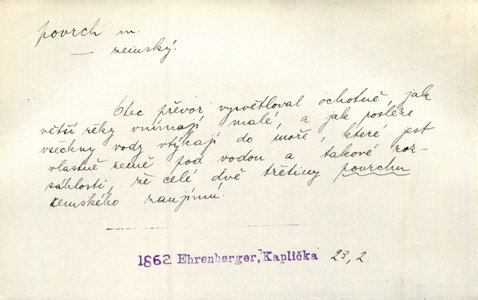 povrch m.
— zemský.
Otec převor vysvětloval ochotně, jak
větší řéky vnímají malé, a jak posléze
všeckny vody vtýkají do moře, které jest
vlastně země pod vodou a takové roz-
sáhlosti, že celé dvě třetiny povrchu
zemského zaujímá.
1862 Ehrenberger, Kaplička 23, 2.